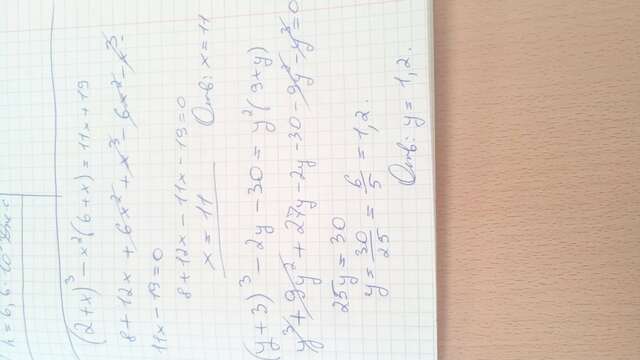 h = 6,6·10
(2+x)³ - x²(6+x) = 11x+19
8+12x+6x²+x³-6x²-x³-
11x-19=0
8+12x-11x-19=0
x=11 Отв: x=11
(y+3)³ - 2y - 30 = y²(9+y)
y³+9y²+27y-2y-30-9y²-y³=0
25y=30
y = 30/25 = 6/5 = 1,2.
Отв: y = 1,2.